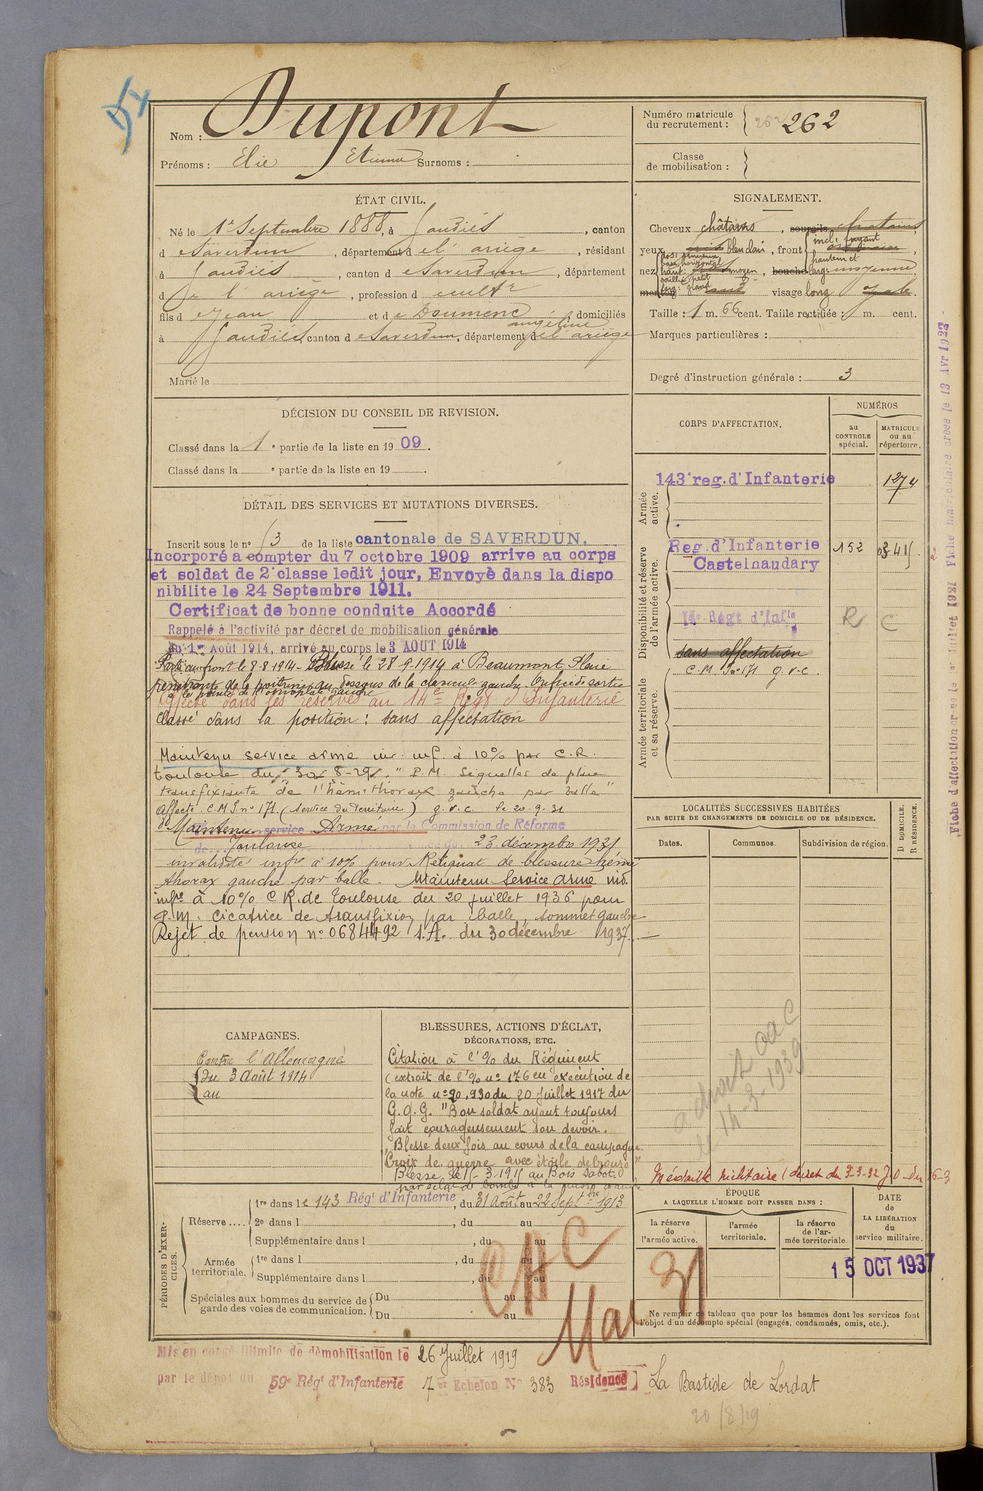 Nom : Dupont
Prénoms : Elie Etienne Surnoms :
Numéro matricule
du recrutement : 262 262
Classe
de mobilisation :
ÉTAT CIVIL.
Né le 1er Septembre 1888, à Gaudiès, canton
de Saverdun, département de l'ariège, résidant
à Gaudiès, canton de Saverdun, département
de l'ariège, profession de cultr
fils de Jean et de Doumenc angéline, domiciliés
à Gaudiès canton de Saverdun, département de l'ariège
Marié le
SIGNALEMENT.
Cheveux châtains, sourcils châtains
yeux gris bleu clair, front incl: fuyant
hauteur et
nez dos: sinueux
base: horizontal
haut: moyen, bouche large moyenne
saillie: petit
larg: grand
menton visage long ovale
Taille : 1 m. 66 cent. Taille rectifiée : 1 m. cent.
Marques particulières :
Degré d'instruction générale : 3
DÉCISION DU CONSEIL DE REVISION.
Classé dans la 1e partie de la liste en 1909.
Classé dans la e partie de la liste en 19 .
CORPS D'AFFECTATION.
NUMÉROS
au
CONTROLE
spécial.
MATRICULE
ou au
répertoire.
Armée
active.
143e reg. d'Infanterie 1274
Disponibilité et réserve
de l'armée active.
Reg. d'Infanterie 152 0341
Castelnaudary
14e Régt d'Infie R C
sans affectation
C. M. I. no 171 g.v.c.
Armée territoriale
et sa réserve.
DÉTAIL DES SERVICES ET MUTATIONS DIVERSES.
Inscrit sous le no 13 de la liste cantonale de SAVERDUN.
Incorporé a compter du 7 octobre 1909 arrive au corps
et soldat de 2e classe ledit jour. Envoyé dans la dispo
nibilite le 24 Septembre 1911.
Certificat de bonne conduite Accordé
Rappelé à l'activité par décret de mobilisation générale
du 1er Août 1914, arrivé au corps le 3 AOUT 1914
Parti au front le 9.8.1914 - Blessé le 28.9.1914 à Beaumont. Plaie
pénétrante de la poitrine au dessous de la clavicule gauche. Orifice de sortie
à la pointe de l'omoplate gauche
Affecté dans les réserves au 14e Régt d'Infanterie
Classé dans la position : sans affectation
Maintenu service armé inv. inf. à 10% par C.R.
toulouse du 30.8.29. "P.M. Séquelles de plaie
transfixiante de l'hémithorax gauche par balle"
Affecté C.M.I. no 171 (service du Territoire) g.v.c. le 20.9.31
Maintenu service Armé par la Commission de Réforme
de Toulouse 23 décembre 1931
invalidité infre à 10% pour Reliquat de blessure hémi
thorax gauche par balle. Maintenu Service armé ind.
infre à 10% C.R. de Toulouse du 20 juillet 1936 pour
P.M. Cicatrice de transfixion par balle, sommet gauche
Rejet de pension no 0684492 I.A. du 30 décembre 1937.
LOCALITÉS SUCCESSIVES HABITÉES
PAR SUITE DE CHANGEMENTS DE DOMICILE OU DE RÉSIDENCE.
Dates.
Communes.
Subdivision de région.
D DOMICILE.
R RÉSIDENCE.
le 14-3-1939
CAMPAGNES.
Contre l'Allemagne
du 3 Août 1914
au
BLESSURES, ACTIONS D'ÉCLAT,
DÉCORATIONS, ETC.
Citation à l'% du Régiment
(extrait de l'% no 176 en exécution de
la note no 20.930 du 20 Juillet 1917 du
G.Q.G. "Bon soldat ayant toujours
fait courageusement son devoir.
Blessé deux fois au cours de la campagne"
Croix de guerre avec étoile de bronze
Blessé le 15-3-1915 au Bois Sabot
par éclat de bombe à la jambe gauche
Médaille militaire (décret du 23.3.32 J.O. du 26-3
PÉRIODES D'EXER-
CICES.
Réserve ....
1re dans le 143 Régt d'Infanterie, du 31 août au 22 Septbre 1913
2e dans l , du au
Supplémentaire dans l , du au
Armée
territoriale.
1re dans l , du au
Supplémentaire dans l , du au
Spéciales aux hommes du service de
garde des voies de communication.
Du au
Du au
CAC
Mar 31
ÉPOQUE
A LAQUELLE L'HOMME DOIT PASSER DANS :
la réserve
de l'armée active.
l'armée
territoriale.
la réserve
de l'ar-
mée territoriale.
DATE
de
LA LIBÉRATION
du
service militaire.
15 OCT 1937
Ne remplir ce tableau que pour les hommes dont les services font
l'objet d'un décompte spécial (engagés, condamnés, omis, etc.).
Mis en congé illimité de démobilisation le 26 Juillet 1919
par le dépôt du 59e Régt d'Infanterie 7er Echelon No 383 Résidence La Bastide de Lordat
20/8/19